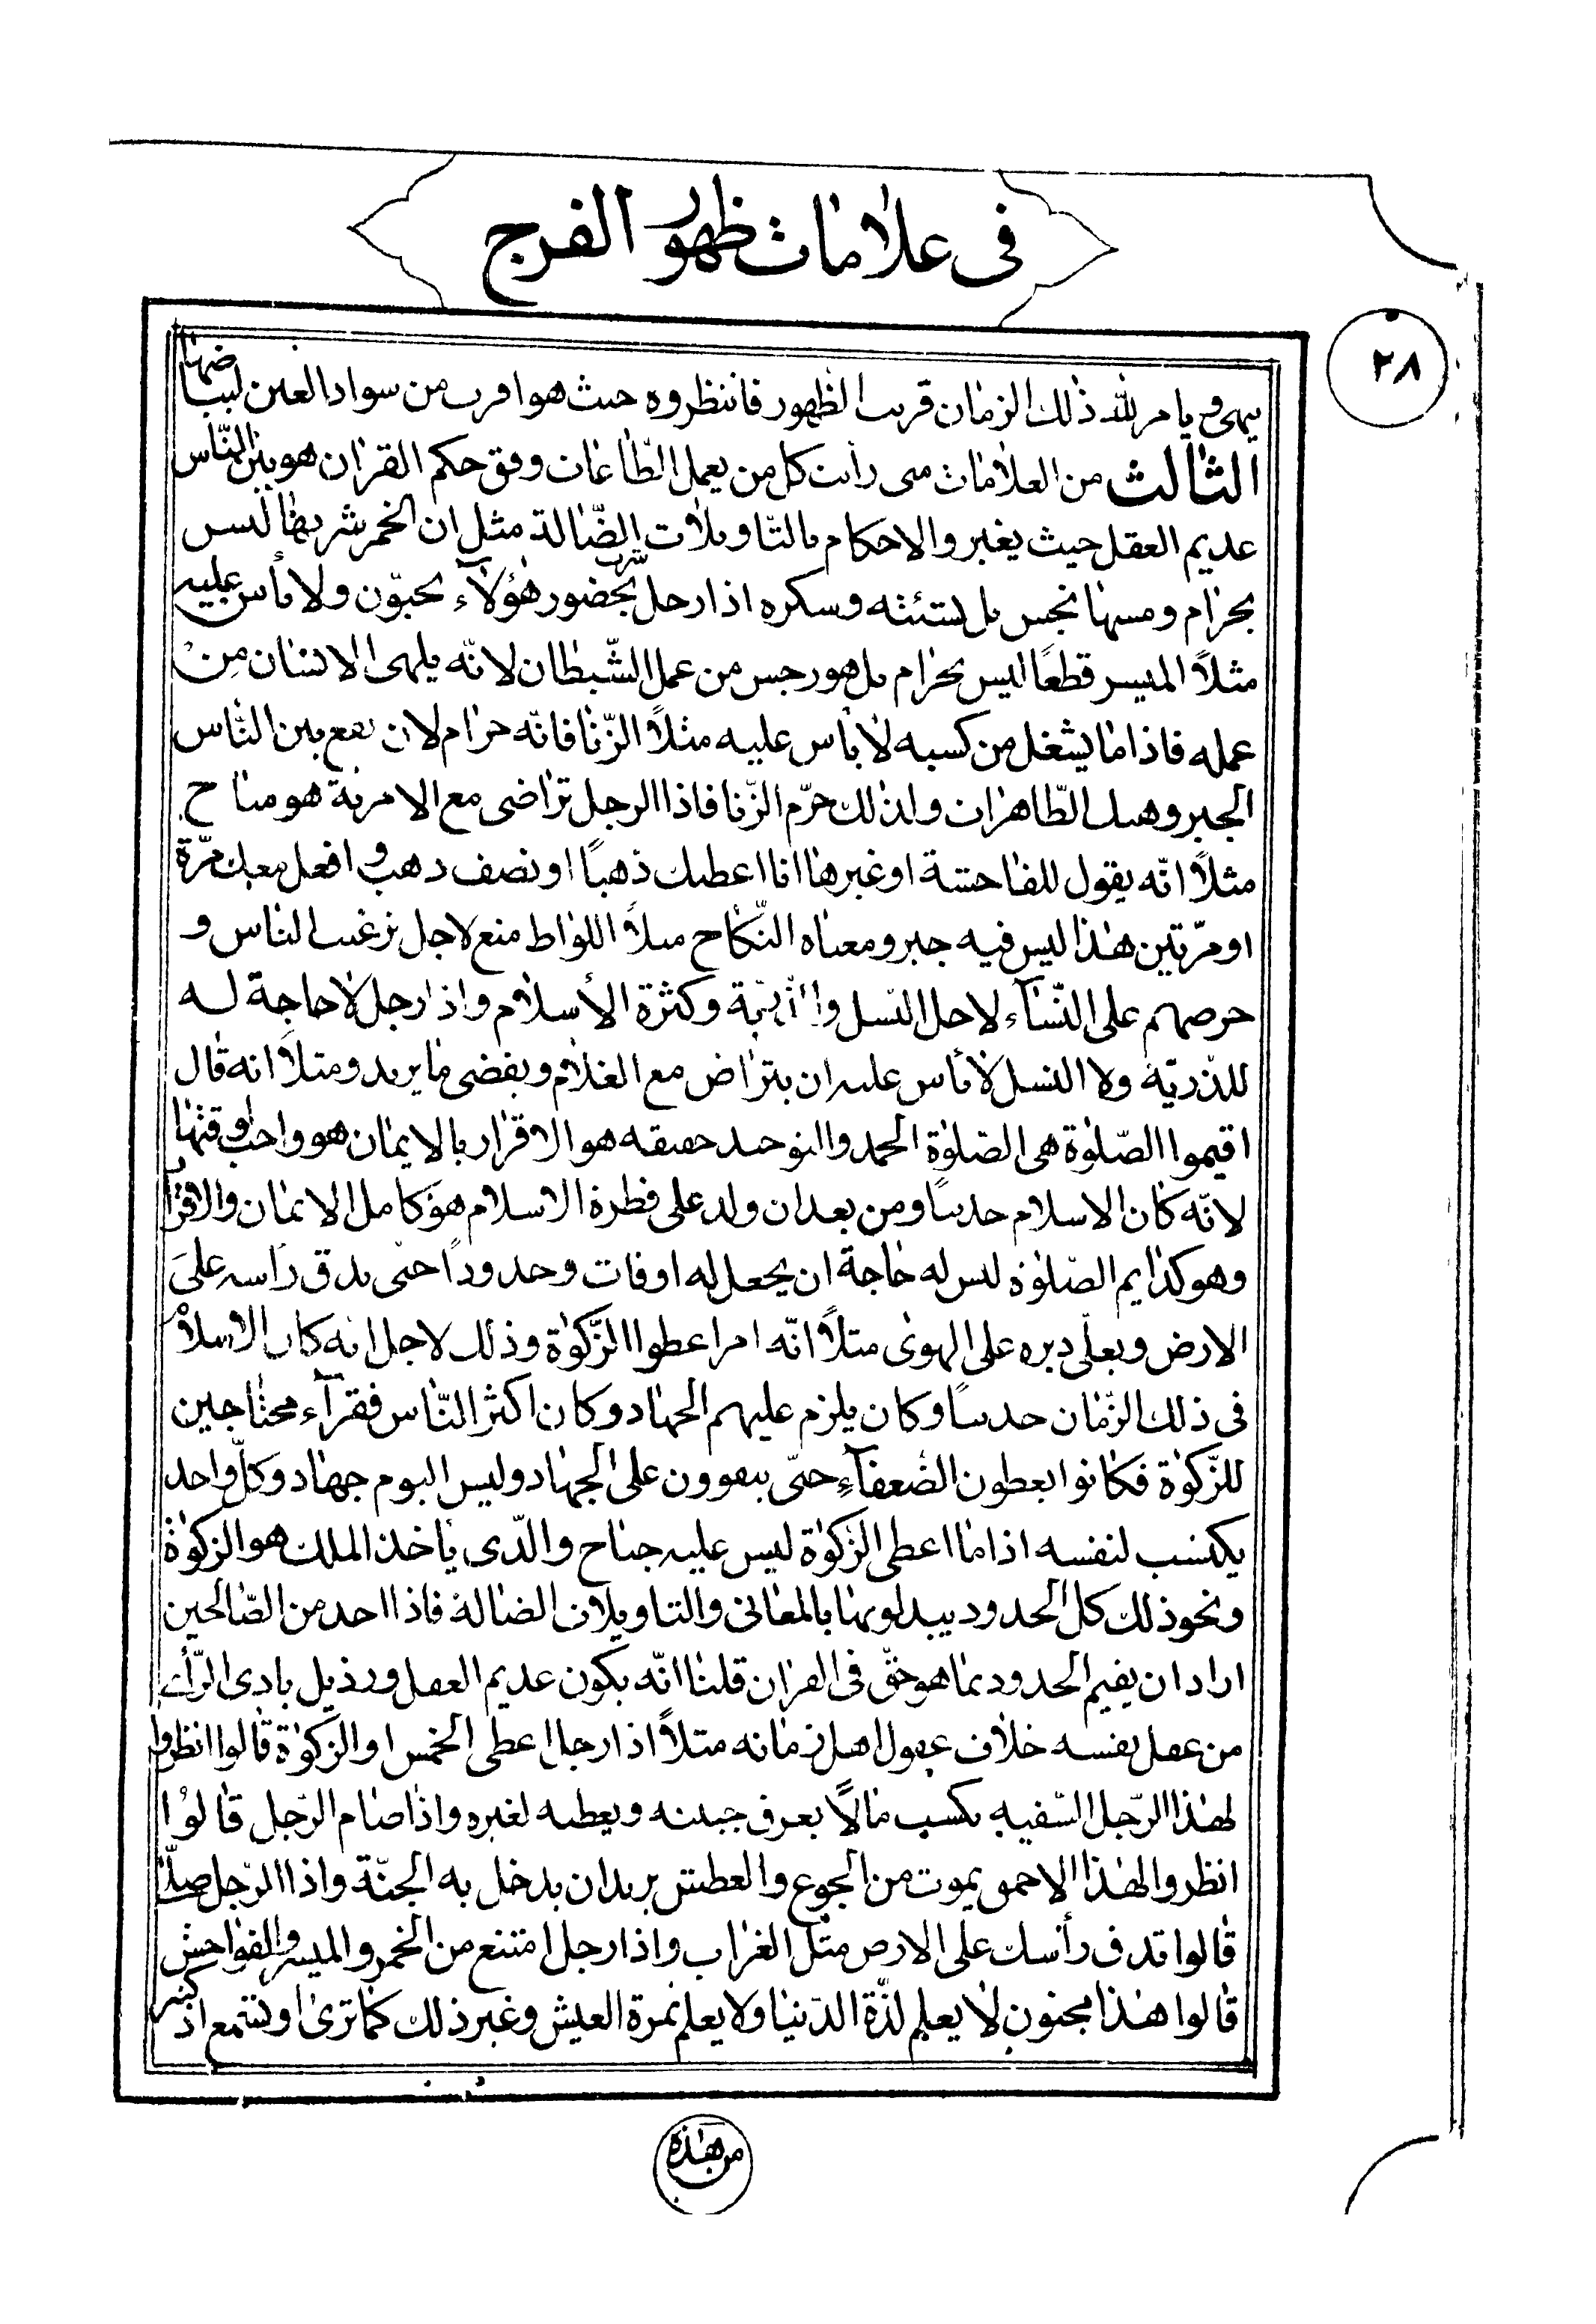 في علامات ظهور الفرج
٢٨
يامر لله ذلك الزمان قريب الظهور فانتظروه حيث هو اقرب من سواد العين لبياضها
الثالث من العلامات متى رأيت كل من يعمل الطّاعات وفق حكم القران هو بين النّاس
عديم العقل حيث يغير والاحكام بالتّاويلات الضّالة مثل ان الخمر شربها ليس
بحرام ومسها نجس بل نستئنه وسكره اذا رجل شرب بحضور هؤلآء يحبّون ولا بأس عليه
مثلاً الميسر قطعًا ليس بحرام بل هو رجس من عمل الشّيطان لانّه يلهى الانسان مِنْ
عمله فاذا ما يشغل من كسبه لا بأس عليه مثلاً الزّنا فانّه حرام لان يقع بين النّاس
الجبر وهتك الطّاهرات ولذلك حرّم الزّنا فاذا الرجل تراضى مع الامرية هو مباح
مثلاً انّه يقول للفاحشة او غيرها انا اعطيك ذهبًا او نصف ذهب وافعل معك مرّة
او مرّتين هذا ليس فيه جبر ومعناه النّكاح مثلاً اللواط منع لاجل ترغيب الناس و
حرصهم على النّسآء لاجل النسل وكثرة الأسلام واذا رجل لا حاجة له
للذّريّة ولا النسل لا بأس عليه ان يتراض مع الغلام ويقضى ما يريد ومثلاً انه قال
اقيموا الصّلوٰة هى الصّلوٰة الحمد والتوحيد حقيقه هو الاقرار بالايمان هو واجب وقتها
لانّه كان الاسلام حديثًا ومن بعد ان ولد على فطرة الاسلام هو كامل الايمان والاقرار
وهو كذا يم الصّلوٰة ليس له حاجة ان يجعل له اوقات وحدودًا حتى يدق رأسه على
الارض ويعلّى دبره على الهوى مثلاً انّه امر اعطوا الزّكوٰة وذلك لاجل انه كان الاسلام
فى ذلك الزّمان حديثًا وكان يلزم عليهم الجهاد وكان اكثر النّاس فقرآء محتاجين
للزّكوٰة فكانوا يعطون الضّعفآءِ حتّى يتقوون على الجهاد وليس اليوم جهاد وكلّ واحد
يكتسب لنفسه اذا ما اعطى الزّكوٰة ليس عليه جناح والّذى ياخذ الملك هو الزكوٰة
ونحو ذلك كل الحدود يبدلونها بالمعانى والتاويلات الضالة فاذا احد من الصّالحين
اراد ان يقيم الحدود بما هو حقّ فى القران قلنا انّه يكون عديم العقل ورذيل بادى الرّأى
من عقل نفسه خلاف عقول اهل زمانه مثلاً اذا رجل اعطى الخمس او الزكوٰة قالوا انظروا
لهذا الرّجل السّفيه يكسب مالاً بعرق جبينه ويعطيه لغيره واذا صام الرّجل قالوْا
انظروا لهذا الاحمق يموت من الجوع والعطش يريد ان يدخل به الجنّة واذا الرّجل صلّى
قالوا تدق رأسك على الارض مثل الغراب واذا رجل امتنع من الخمر والميسر والفواحش
قالوا هذا مجنون لا يعلم لذّة الدّنيا ولا يعلم ثمرة العيش وغير ذلك كما ترى او تستمع اذ كثير
من هذه